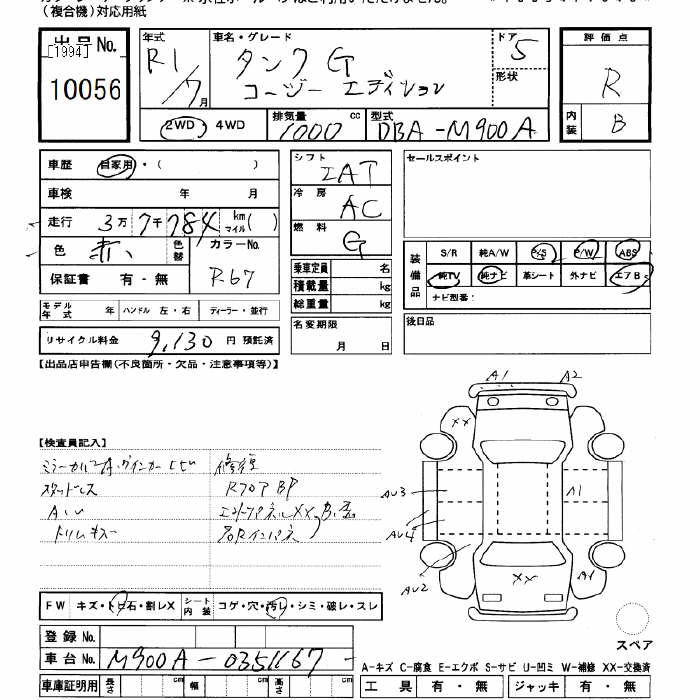 (複合機)対応用紙
出品No.
[1994]
10056
年式
R1/7月
車名・グレード
タンク G
コージーエディション
ドア 5
形状
評価点
R
内装 B
2WD・4WD
排気量 1000 cc
型式 DBA-M900A
車歴 自家用・( )
車検 年 月
走行 3万7千784 km マイル( )
色 赤い 色替 カラーNo. R67
保証書 有・無
シフト IAT
冷房 AC
燃料 G
乗車定員 名
積載量 kg
総重量 kg
名変期限 月 日
セールスポイント
装備品
S/R 純A/W P/S P/W ABS
純TV 純ナビ 革シート 外ナビ エアB
ナビ型番:
後日品
モデル年式 年 ハンドル 左・右 ディーラー・並行
リサイクル料金 9,130 円 預託済
【出品店申告欄(不良箇所・欠品・注意事項等)】
【検査員記入】
修復
スタッドレス
RフロアBP
トリムキズ
FW キズ・トビ石・割レX シート内装 コゲ・穴・汚レ・シミ・破レ・スレ
登録No.
車台No. M900A-0351167
車庫証明用 長さ cm 幅 cm 高さ cm
A1 A2
XX
AU3
A1
AU4
AU2
XX
A1
スペア
A-キズ C-腐食 E-エクボ S-サビ U-凹ミ W-補修 XX-交換済
工具 有・無 ジャッキ 有・無